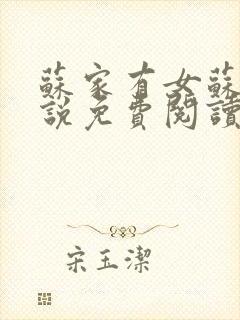 蘇家有女蘇
說免費閱讀
宋玉潔